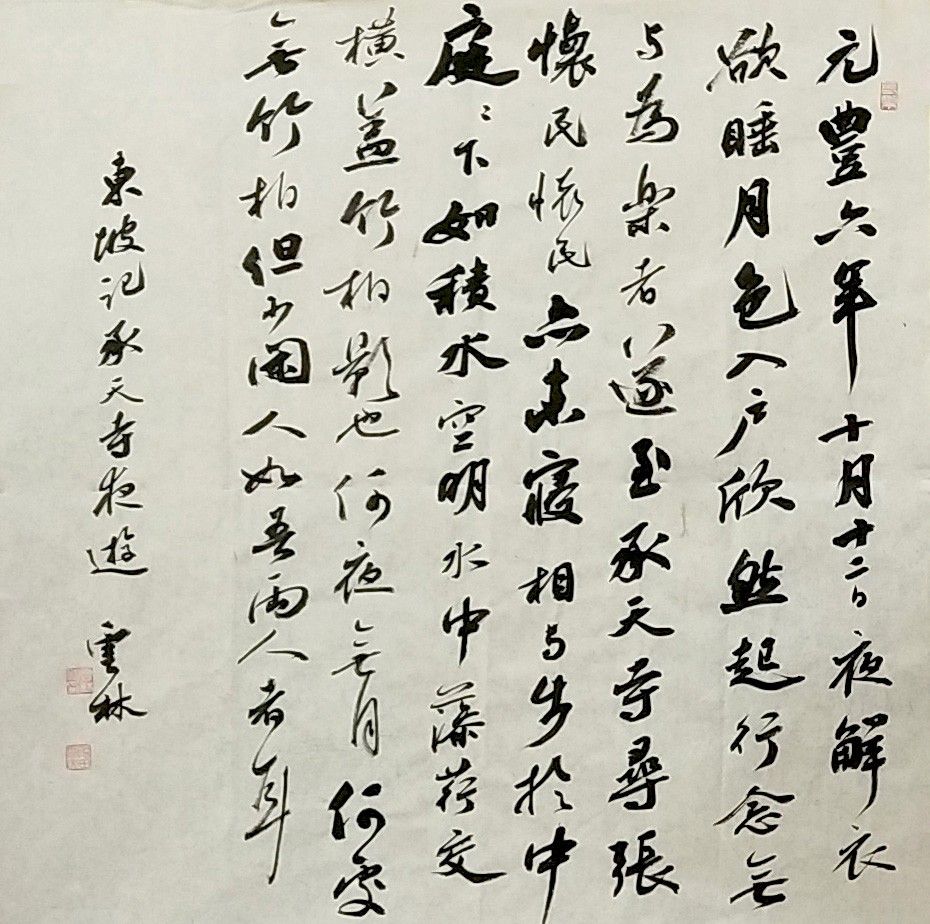 元豐六年十月十二日夜解衣
欲睡月色入户欣然起行念无
与為樂者遂至承天寺尋張
懷民懷民亦未寢相与步於中
庭〻下如積水空明水中藻荇交
橫蓋竹柏影也何夜无月何處
无竹柏但少閑人如吾兩人者耳
東坡記承天寺夜遊 雲林